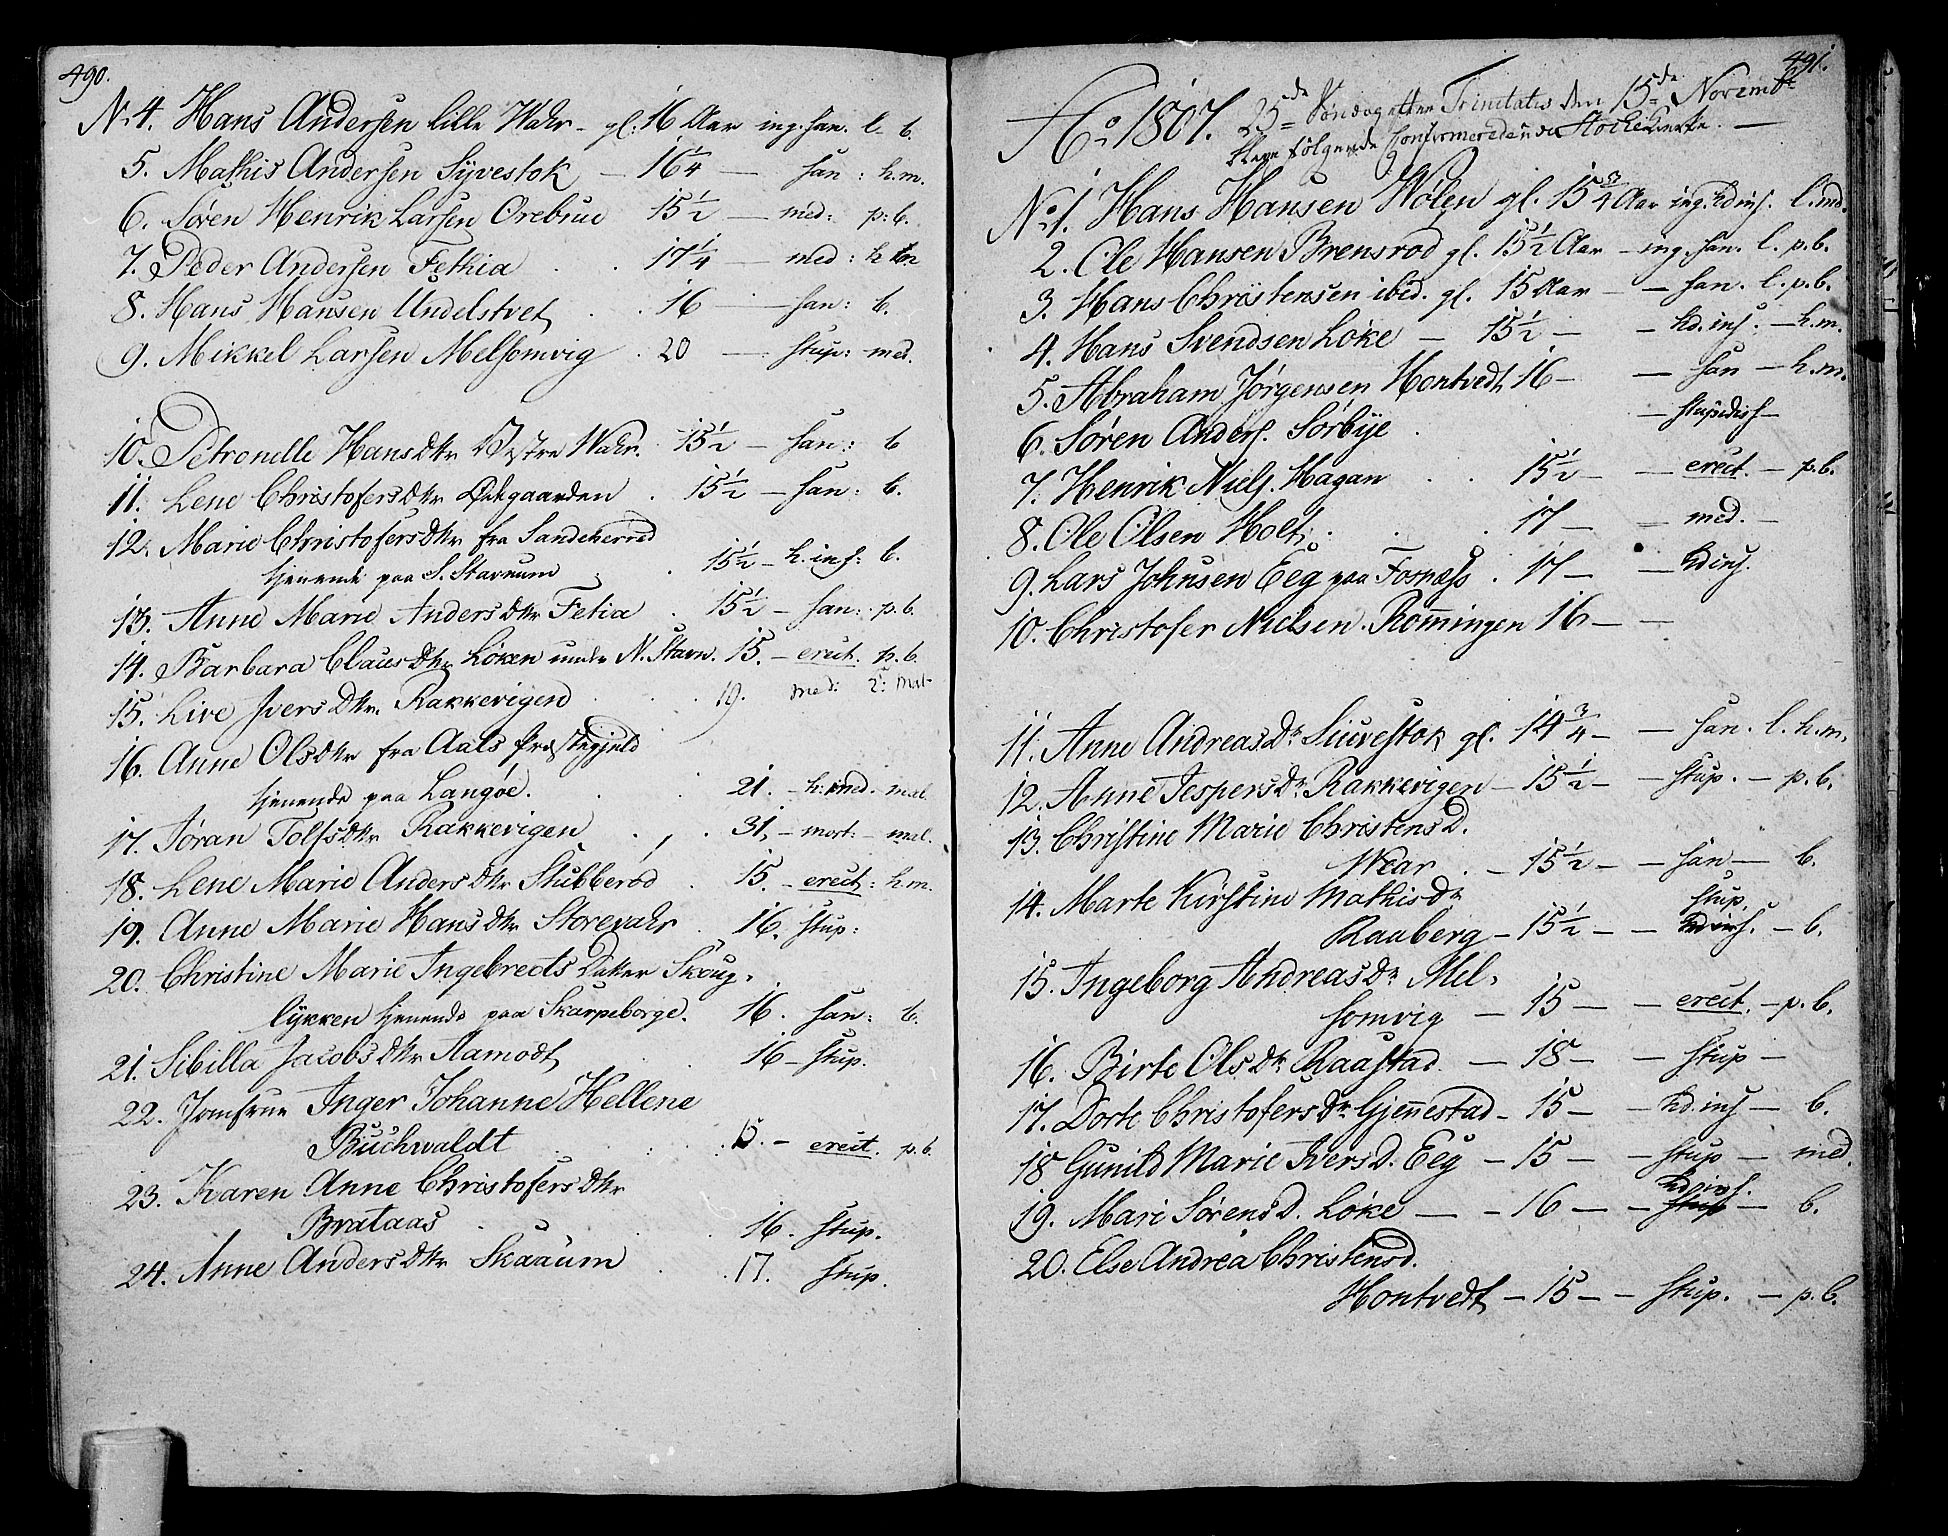 490.
No 4. Hans Andersen lille Wahr - gl: 16 Aar ing. san. l. b.
5. Mathis Andersen Syvestok - 16 1/4 - san: h.m.
6. Søren Henrik Larsen Orebrue 15 1/2 - med: p:b.
7. Peder Andersen Fethia . . 17 1/4 - med: h m
8. Hans Hansen Undelstvet . . 16 - san: b.
9. Mikkel Larsen Melsomvig . 20 - stup: med.
10. Petronelle HansDtr Vestre Wahr. 15 1/2 - san: b
11. Lene ChristofersDtr Østgaarden . 15 1/2 - san: b.
12. Marie ChristofersDtr fra Sandeherred
tjenende paa S. Stavnum . . 15 1/2 - h. inf: b.
13. Anne Marie AndersDtr Fetia . 15 1/2 - san: p.b.
14. Barbara ClausDtr Løken under N. Stavn. 15. - erect. p.b.
15. Live IversDtr. Rakkevigen . . . 19. med: 2: mal-
16. Anne OlsDtr fra Aals Præstegjeld
tjenende paa Langøe. . . 21. - h: med. mal.
17. Jøran TolfsDtr Rakkevigen . , . 31. - mort: - mal.
18. Lene Marie AndersDtr Stubberød . 15. - erect: h.m.
19. Anne Marie HansDtr Storevahr . 16. stup:
20. Christine Marie Ingebrects Datter Skoug-
lykken tjenende paa Skarpeborge. 16. san: b.
21. Sibilla JacobsDtr Aamodt . 16 - stup.
22. Jomfrue Inger Johanne Hellene
Buchwaldt . . . 15. - erect. p.b.
23. Karen Anne ChristofersDtr
Brataas . . . 16. stup.
24. Anne AndersDtr Skaaum . . 17. stup.
491.
Ao 1807. 25de Søndag efter Trinitatis den 15de Novembr
bleve følgende Confirmerede udi Stokke Kirke. -
No 1. Hans Hansen Wølen gl. 15 3/4 Aar ing. hd inf. l. md.
2. Ole Hansen Brensrod gl. 15 1/2 Aar - ing. san. l. p.b.
3. Hans Christensen ibid. gl. 15 Aar - - san. l. p.b.
4. Hans Svendsen Løke - 15 1/2 - - hd. inf. - h.m.
5. Abraham Jørgensen Hontvedt 16 - - san - h.m.
6. Søren Anders. Sørbye . - stupidiss -
7. Henrik Niels. Hagan . . 15 1/2 - - erect. - p.b.
8. Ole Olsen Holt . . . 17 - - med. -
9. Lars Johnsen Eeg paa Fornæss . 17 - - hd inf.
10. Christofer Nielsen Romingen 16 - -
11. Anne AndreasDr Siuvestok gl. 14 3/4 - - san. l. h.m.
12. Anne JespersDr Rakkevigen - 15 1/2 - - stup. - p.b.
13. Christine Marie ChristensD.
Wear . - 15 1/2 - - san - b.
14. Marte Kirstine MathisDr
Raaberg - 15 1/2 - - stup. hd inf. - b.
15. Ingeborg AndreasDr Mel-
somvig - 15 - - erect. - p.b.
16. Birte OlsDr Raastad. - 18 - - stup -
17. Dorte ChristofersDr Gjennestad - 15 - - hd. inf - b.
18 Gunild Marie IversD. Eeg - 15 - - stup - med.
19. Mari SørensD. Løke - - 16 - - hd inf. stup - b.
20. Else Andrea Christensd.
Hontvedt - 15 - - stup. - p.b.